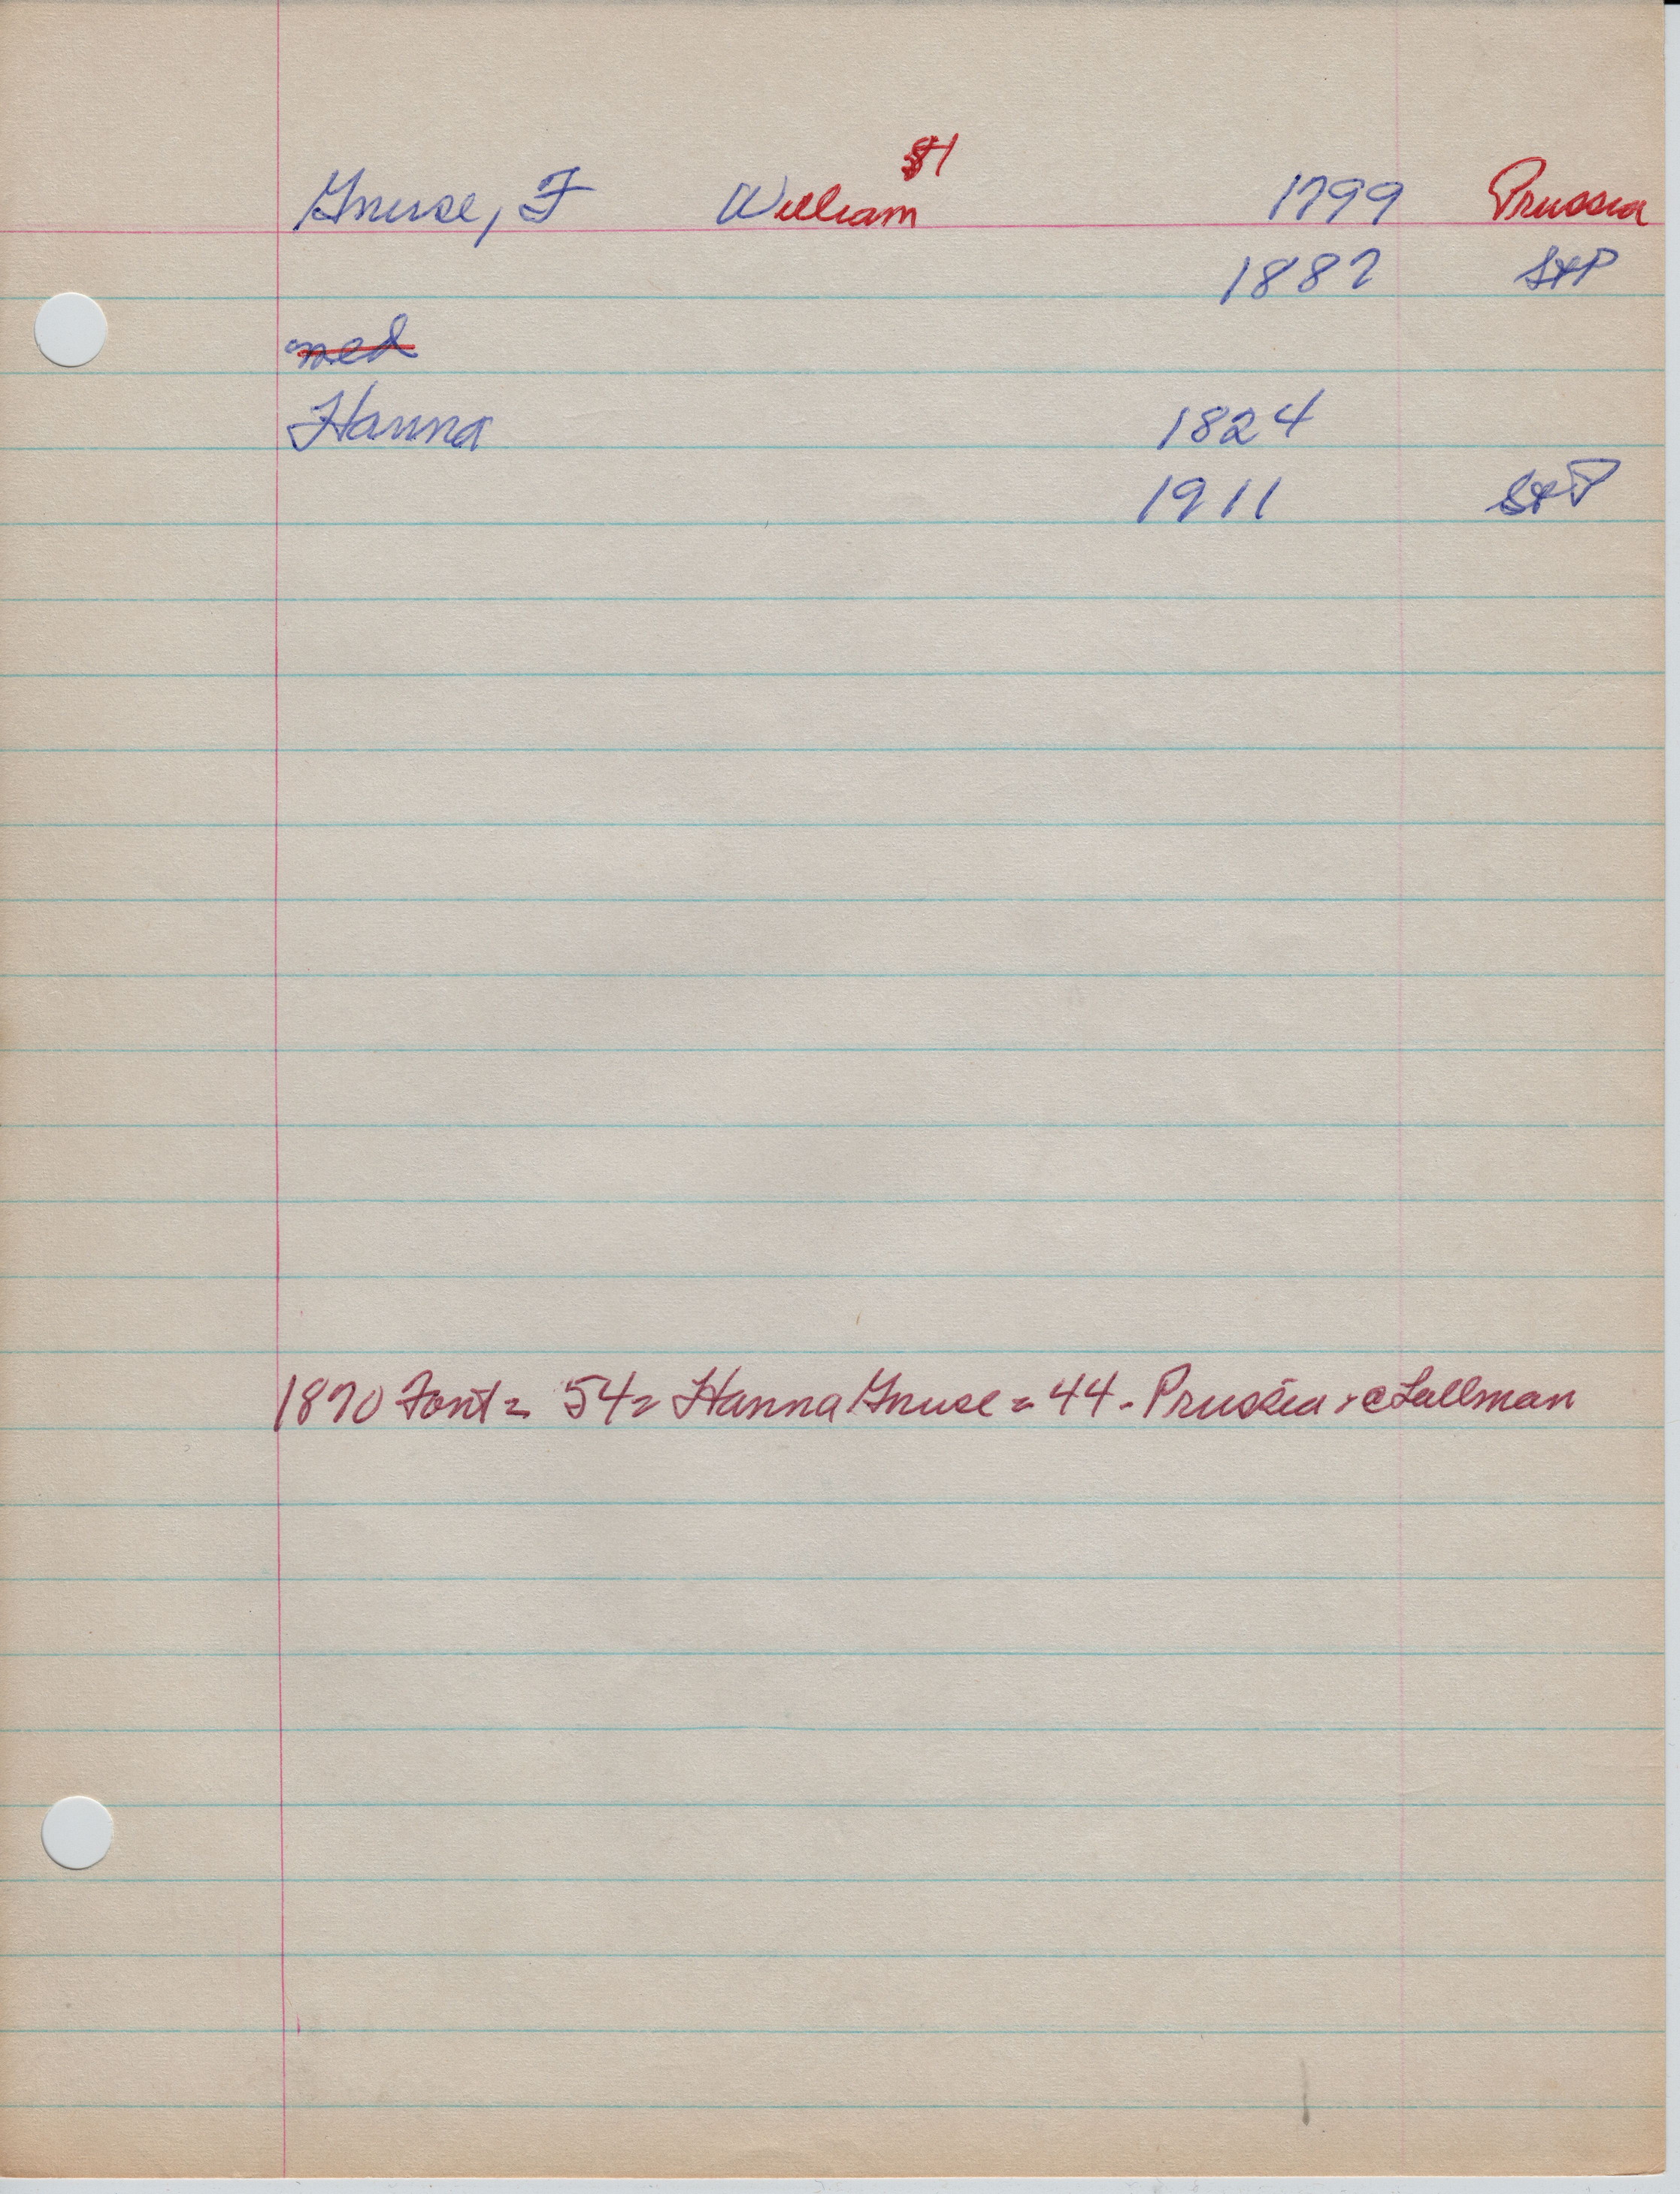 81
Gnuse, F William 1799 Prussia
1887 StP
med
Hanna 1824
1911 StP
1870 Font = 54 = Hanna Gnuse = 44 - Prussia - @ Lallman